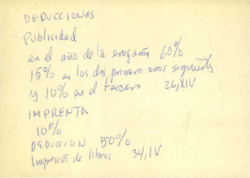 DEDUCCIONES
Publicidad
en el año de la erogación 60%
15% en los dos primeros años siguientes
y 10% en el tercero 26,XIV
IMPRENTA
10%
DEDUCCION 50%
Impresión de libros 34,IV